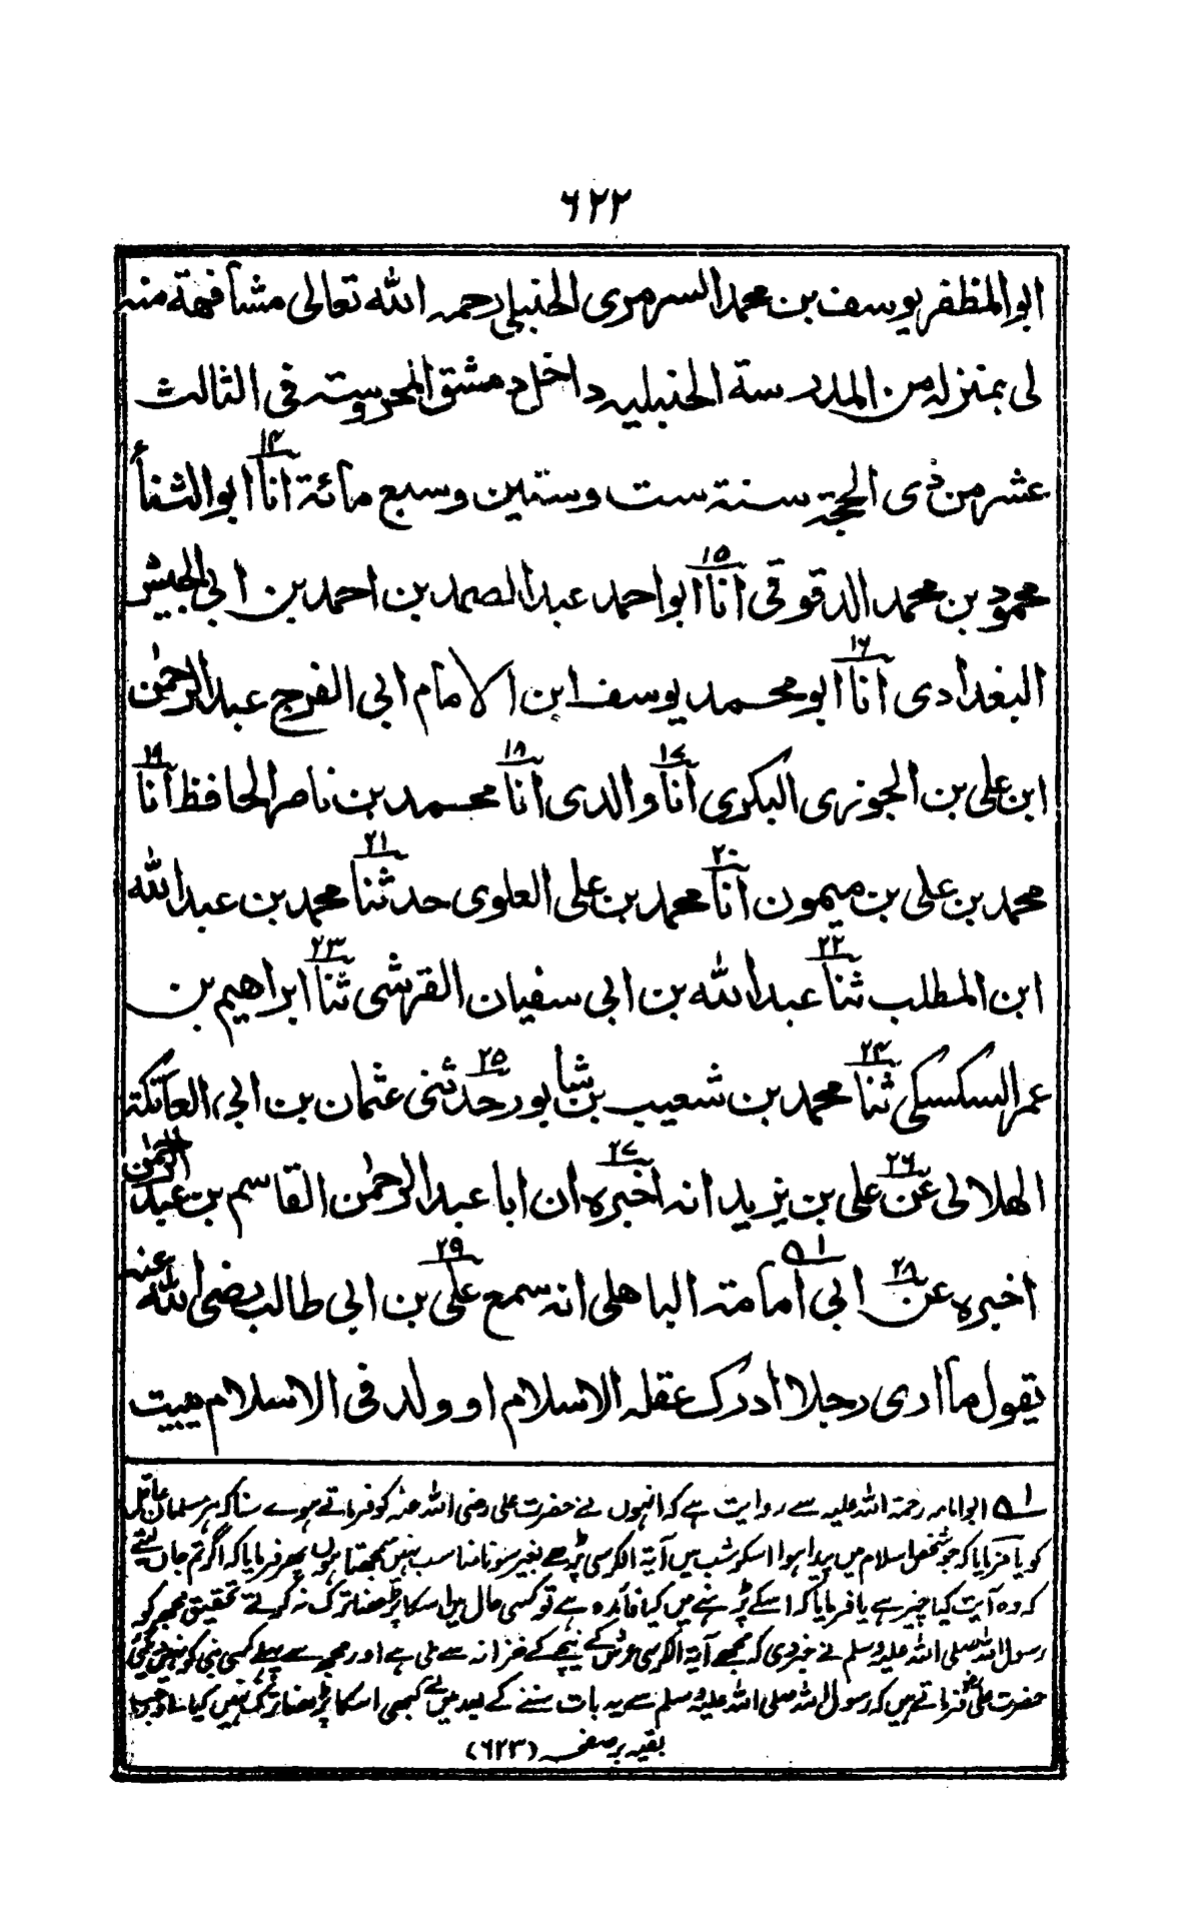 ٦٢٢
ابو المظفر يوسف بن محمد السرمري الحنبلي رحمه الله تعالى مشافهة منه
لى بمنزله من المدرسة الحنبليه داخل دمشق المحروسته فى الثالث
عشر من ذى الحجة سنة ست وستين وسبع مائة انا ١٤ ابو الثفأ
محمود بن محمد الدقوقى انا ١٥ ابو احمد عبد الصمد بن احمد بن ابى الجيش
البغدادى انا ١٦ ابو محمد يوسف ابن الامام ابى الفرج عبد الرحمٰن
ابن على بن الجوزى البكرى انا ١٧ والدى انا ١٨ محمد بن ناصر الحافظ انا ١٩
محمد بن على بن ميمون انا ٢٠ محمد بن على العلوى حدثنا ٢١ محمد بن عبد الله
ابن المطلب ثنا ٢٢ عبد الله بن ابى سفيان القرشى ثنا ٢٣ ابراهيم بن
عمر السكسكى ثنا ٢٤ محمد بن شعيب بن شابور حدثنى ٢٥ عثمان بن ابى العاتكة
الهلالى عن ٢٦ على بن يزيد انه اخبره ٢٧ ان ابا عبد الرحمٰن القاسم بن عبد الرحمٰن
اخبره عن ٢٨ ابى امامة ١ الباهلى انه سمع على ٢٩ بن ابى طالب رضى الله عنه
يقول ما ارى رجلا ادرك عقله الاسلام او ولد فى الاسلام يبيت
١ ابو امامہ رحمۃ اللہ علیہ سے روایت ہے کہ انہوں نے حضرت علی رضی اللہ عنہ کو فرماتے ہوے سنا کہ ہر مسلمان عاقل
کو یا فرمایا کہ جو شخص اسلام میں پیدا ہوا اسکو شب میں آیۃ الکرسی پڑھے بغیر سونا مناسب نہیں سمجھتا ہوں پھر فرمایا کہ اگر تم جان لیتے
کہ وہ آیت کیا چیز ہے یا فرمایا کہ اسکے پڑہنے میں کیا فائدہ ہے تو کسی حال میں اسکا پڑھنا ترک نہ کرتے تحقیق مجھ کو
رسول اللہ صلی اللہ علیہ وسلم نے خبر دی کہ مجھے آیۃ الکرسی عرش کے نیچے کے خزانہ سے ملی ہے اور مجھ سے پہلے کسی نبی کو نہیں دی گئی
حضرت علیؓ فرماتے ہیں کہ رسول اللہ صلی اللہ علیہ وسلم سے یہ بات سننے کے بعد میں نے کبھی اسکا پڑھنا ترک نہیں کیا
بقیہ بر صفحہ (٦٢٣)